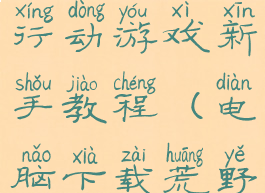 xíng dòng yóu xì xīn
行动游戏新
shǒu jiào chéng diàn
手教程（电
nǎo xià zài huāng yě
脑下载荒野